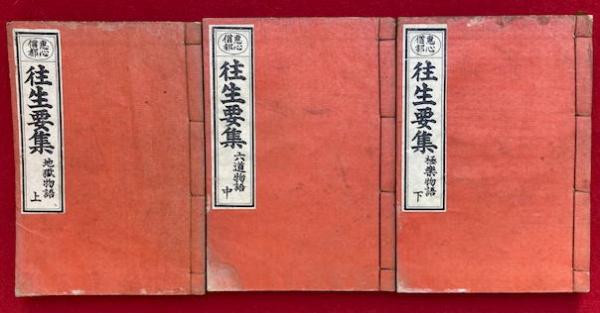 恵心
僧都
往生要集
地獄物語
上
恵心
僧都
往生要集
六道物語
中
恵心
僧都
往生要集
極樂物語
下